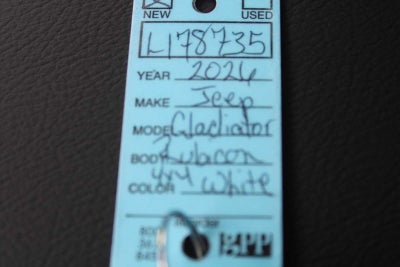 NEW USED
L178735
YEAR 2024
MAKE Jeep
MODEL Gladiator
BODY Rubicon
COLOR 4x4 White
Reorder
gpp